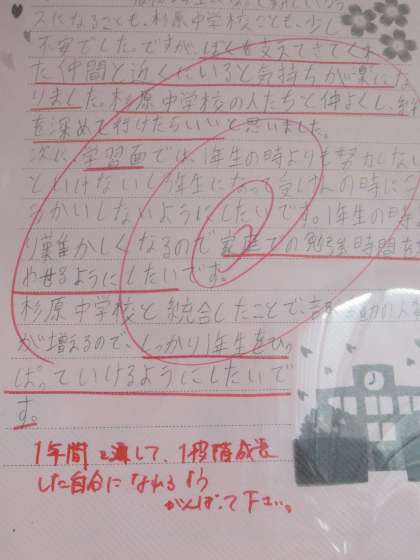 スになることも、杉原中学校ことも、少し
不安でした。ですが、ぼくを支えてきてくま
た仲間と近くにいると気持ちが楽にな
りました。杉原中学校の人たちと仲よくし、
を深めて行けたらいいと思いました。
次に、学習面では、1年生の時よりも努力しない
といけないし3年生になって受けんの時に
うかいしないようにしたいです。1年生の時
り難かしくなるので家庭での勉強時間を
やせるようにしたいです。
杉原中学校と統合したことで、
が増えるので、しっかり1年生をひっ
ぱっていけるようにしたいで
す。
1年間を通して、1段階成長
した自分になれるよう
がんばって下さい。